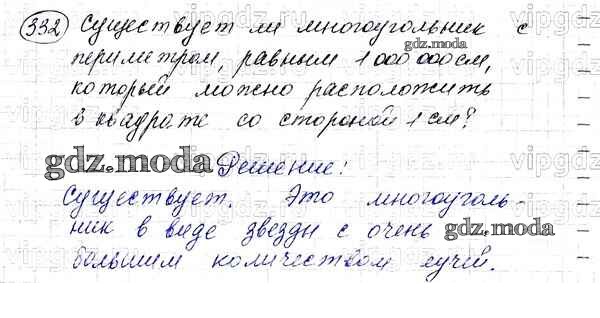 332 Существует ли многоугольник с
периметром, равным 1 000 000 см,
который можно расположить
в квадрате со стороной 1 см?
Решение:
Существует. Это многоуголь-
ник в виде звезды с очень
большим количеством лучей.
gdz.moda
gdz.moda
gdz.moda
vipgdz